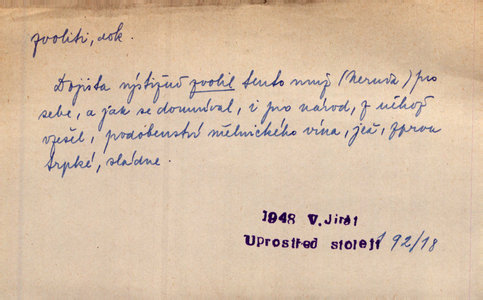 zvoliti, dok.
Dojista výstižně zvolil tento muž (Neruda) pro
sebe, a jak se domníval, i pro národ, z něhož
vzešel, podobenství mělnického vína, jež, zprvu
trpké, sládne.
1948 V. Jirát
Uprostřed století 192/18